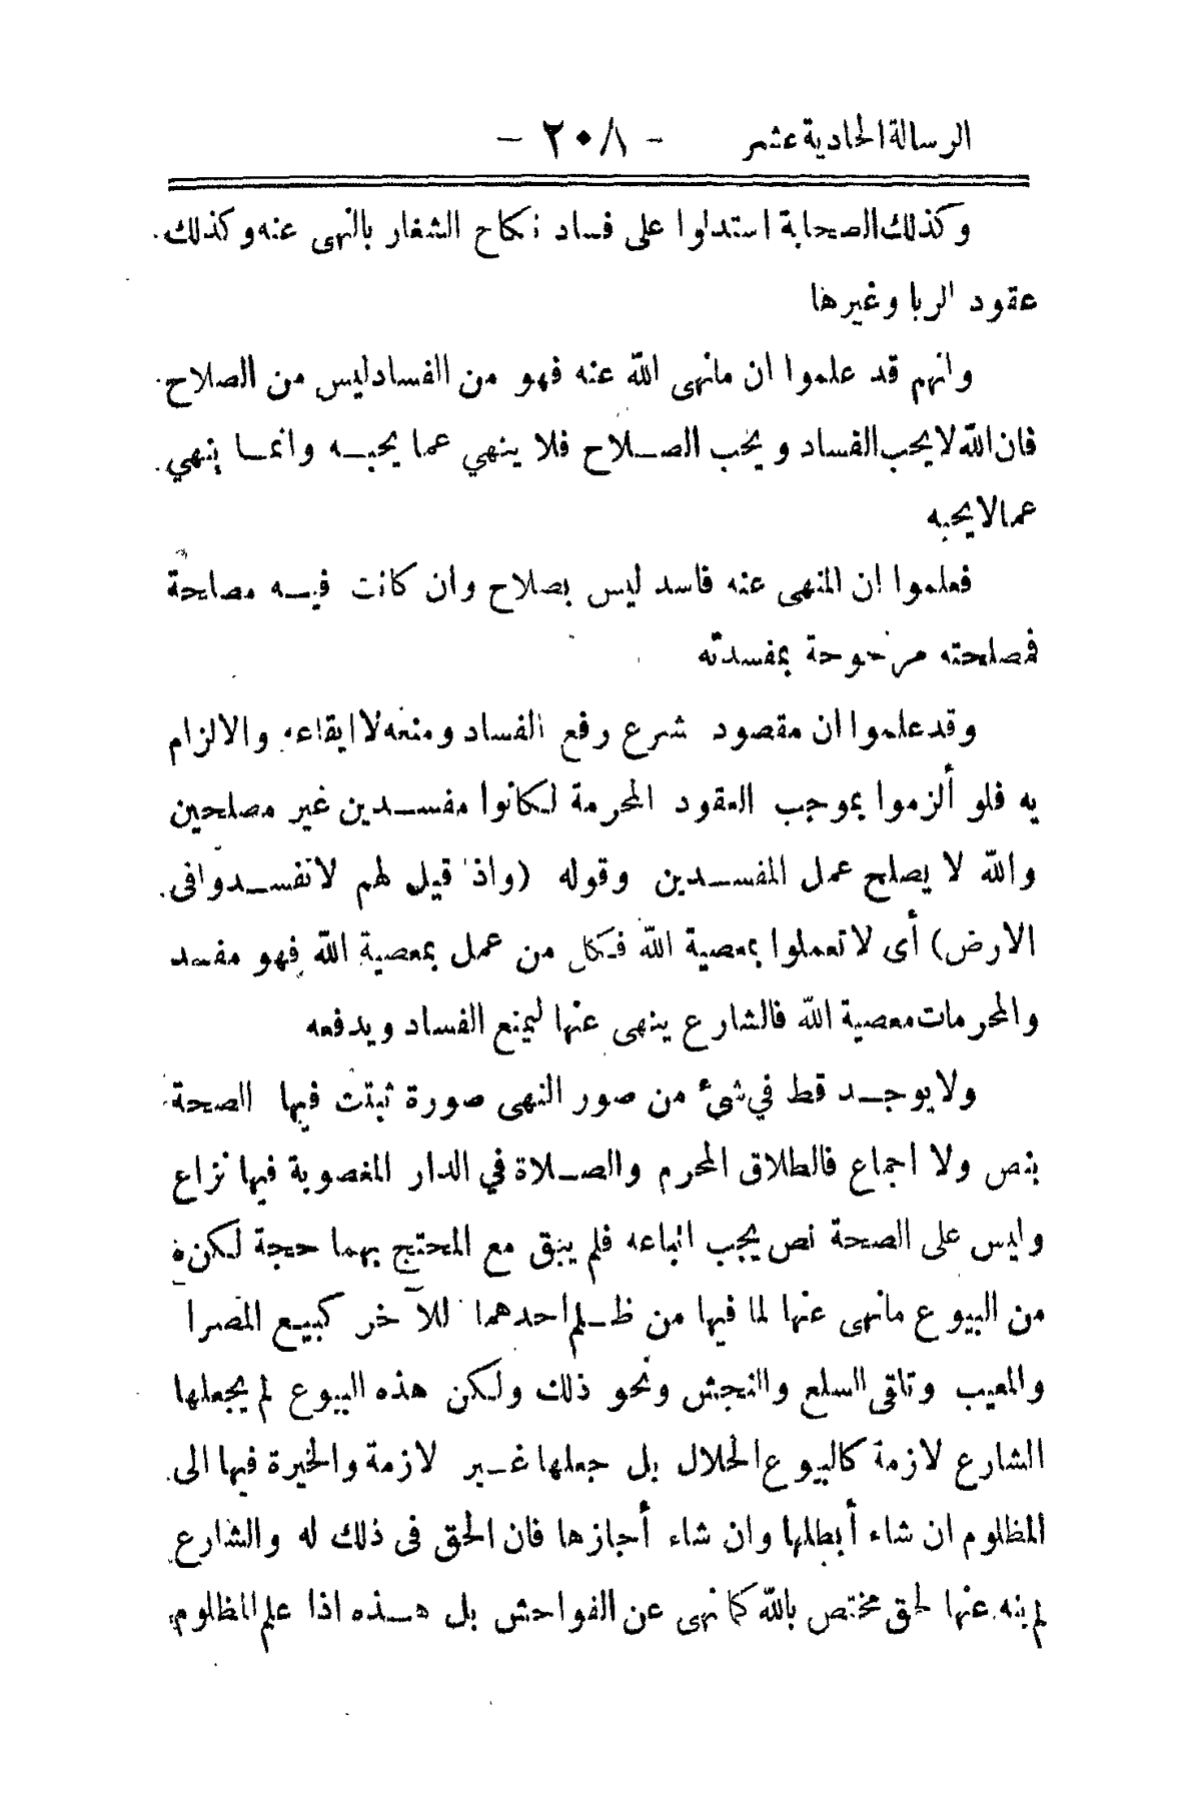 الرسالة الحادية عشر - ٢٠٨ -
وكذلك الصحابة استدلوا على فساد نكاح الشغار بالنهى عنه وكذلك
عقود الربا وغيرها
وانهم قد علموا ان مانهى الله عنه فهو من الفساد ليس من الصلاح
فان الله لا يحب الفساد ويحب الصـلاح فلا ينهي عما يحبـه وانمـا ينهي
عمالا يحبه
فعلموا ان المنهى عنه فاسد ليس بصلاح وان كانت فيـه مصلحة
فمصلحته مرجوحة بمفسدته
وقد علموا ان مقصود شرع رفع الفساد ومنعه لا ايقاءه والالزام
به فلو ألزموا بموجب العقود المحرمة لكانوا مفسـدين غير مصلحين
والله لا يصلح عمل المفسـدين وقوله (واذا قيل لهم لا تفسـدوا فى
الارض) أى لا تعملوا بمعصية الله فكل من عمل بمعصية الله فهو مفسد
والمحرمات معصية الله فالشارع ينهى عنها ليمنع الفساد ويدفعه
ولا يوجـد قط في شىء من صور النهى صورة ثبتت فيها الصحة
بنص ولا اجماع فالطلاق المحرم والصـلاة في الدار المغصوبة فيها نزاع
وليس على الصحة نص يجب اتباعه فلم يبق مع المحتج بهما حجة لكن
من البيوع مانهى عنها لما فيها من ظـلم احدهما للآخر كبيـع المصرا
والمعيب وتلقى السلع والنجش ونحو ذلك ولكن هذه البيوع لم يجعلها
الشارع لازمة كالبيوع الحلال بل جعلها غـير لازمة والخيرة فيها الى
المظلوم ان شاء أبطلها وان شاء أجازها فان الحق فى ذلك له والشارع
لم ينه عنها لحق مختص بالله كما نهى عن الفواحش بل هـذه اذا علم المظلوم